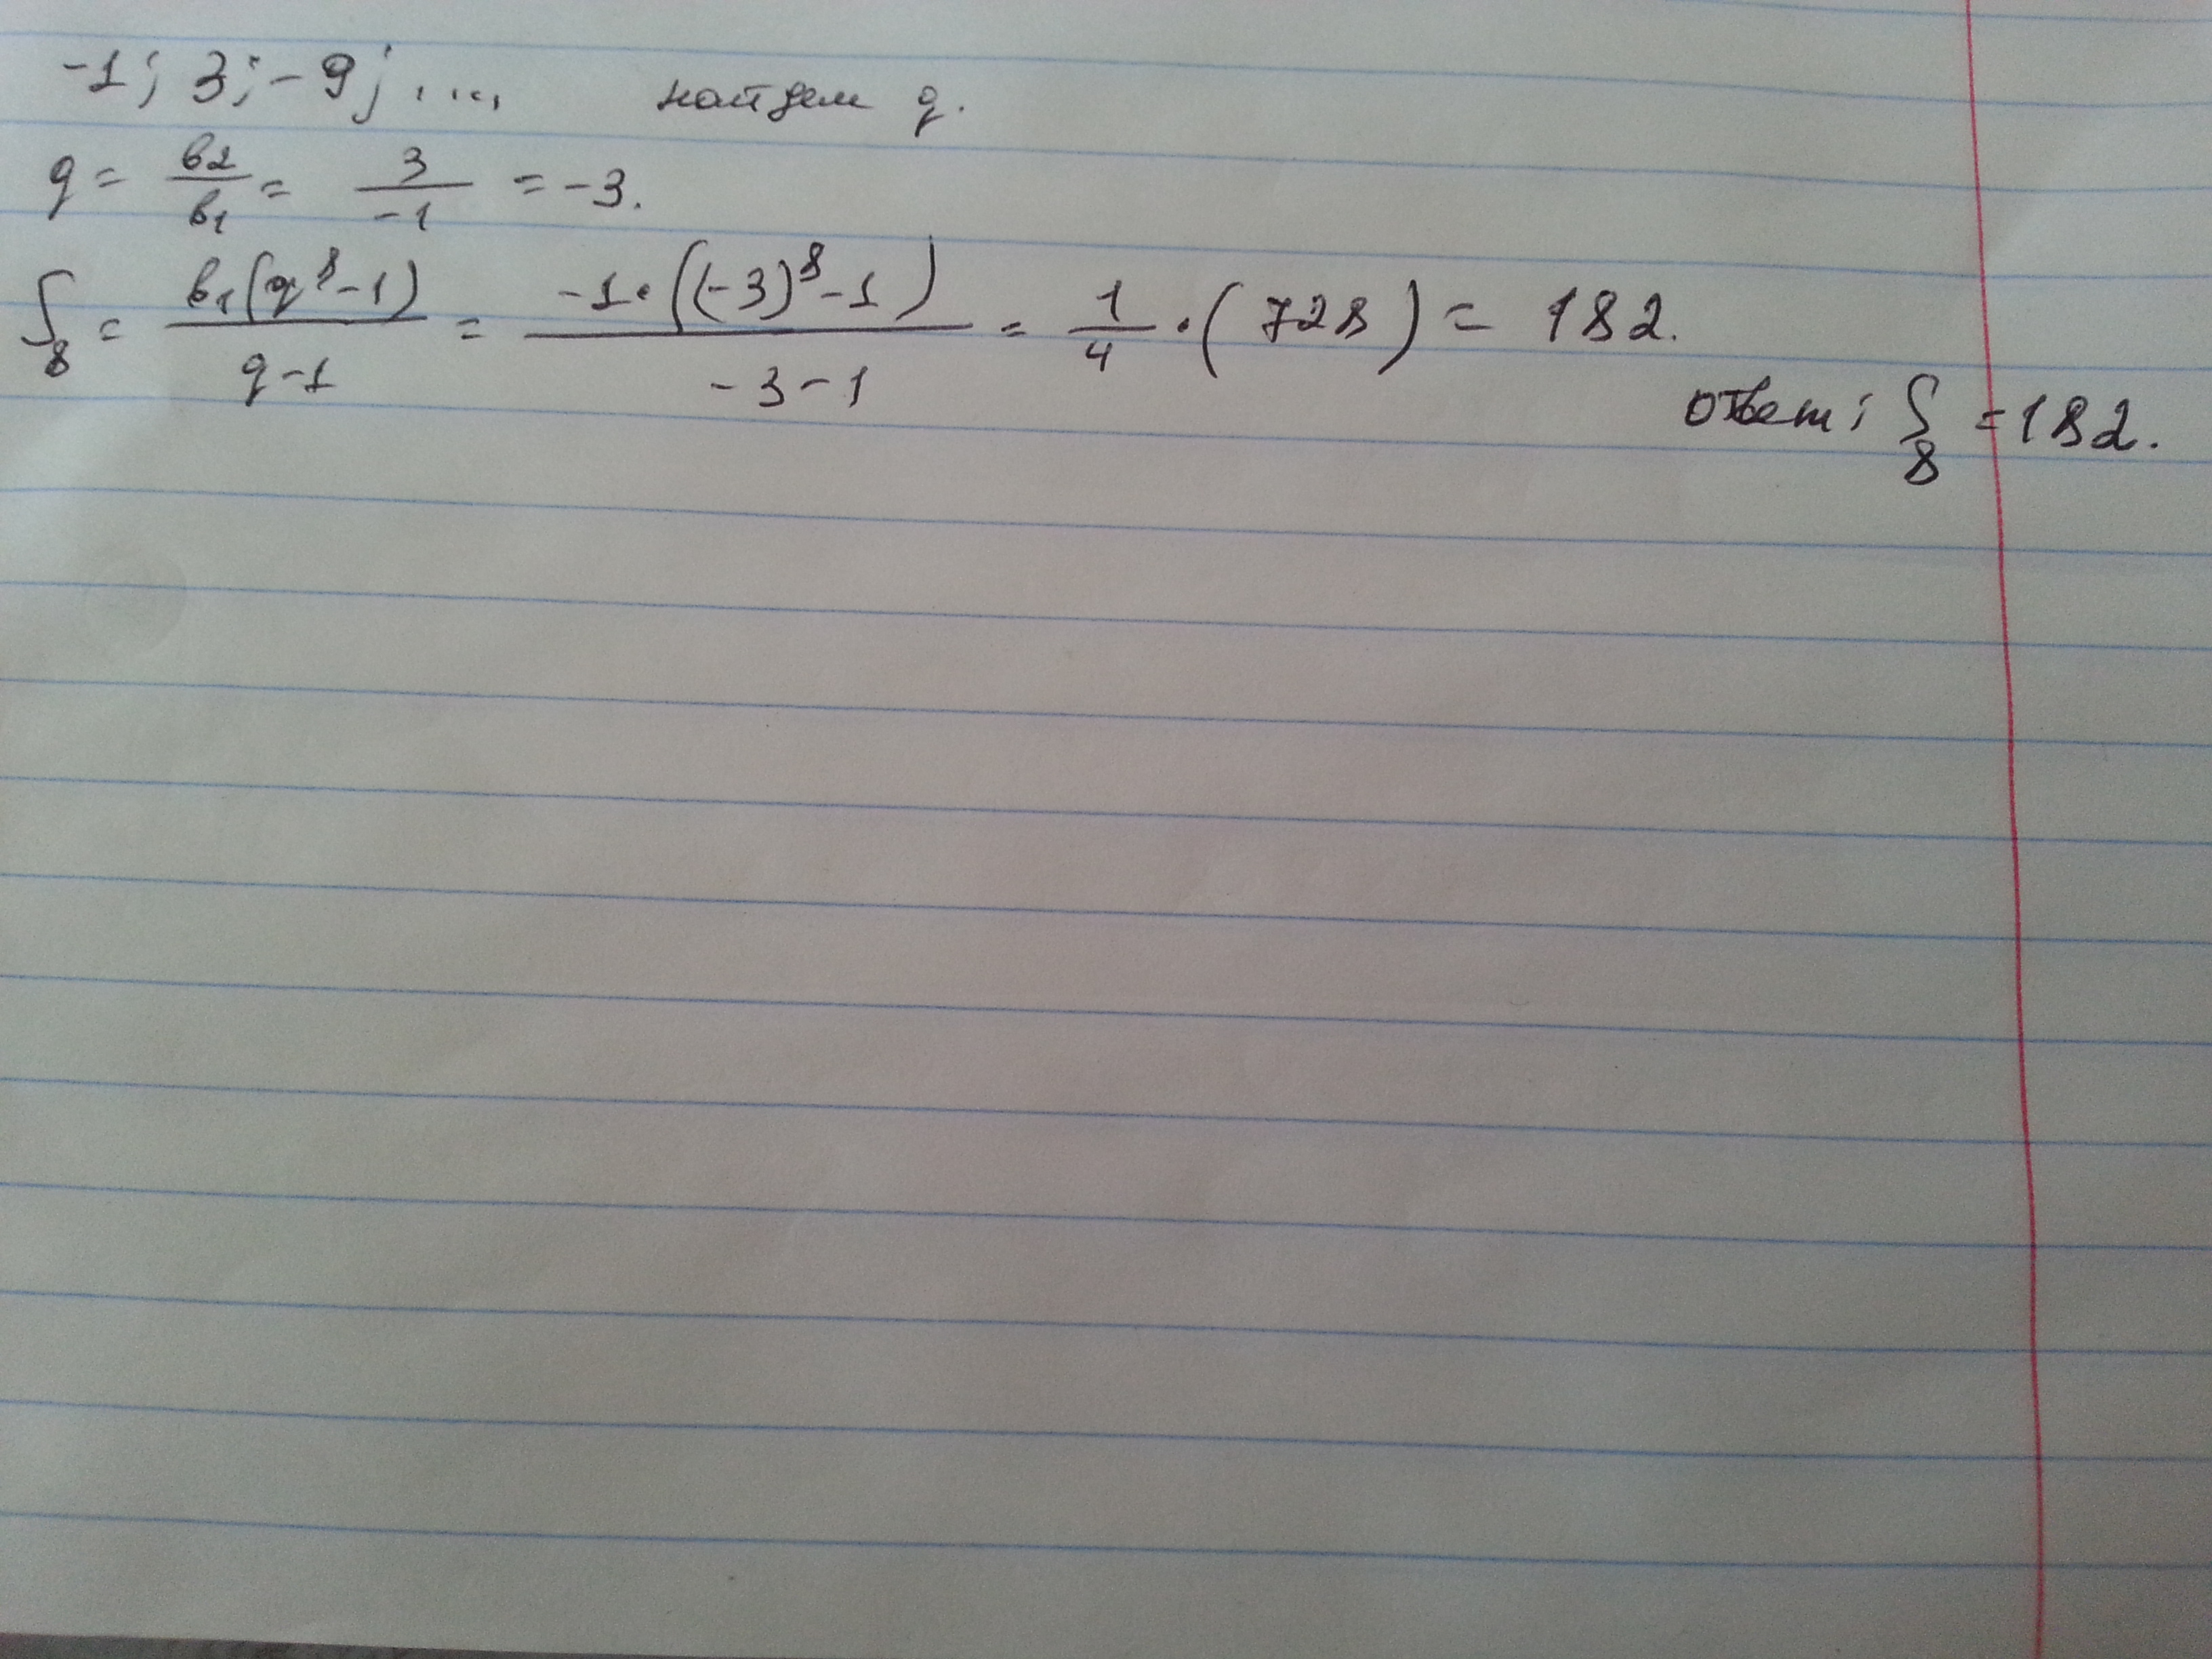 -1; 3; -9; .... найдем q.
q = b2/b1 = 3/-1 = -3.
S8 = b1(q^8-1)/q-1 = -1·((-3)^8-1)/-3-1 = 1/4·(728) = 182.
ответ: S8 = 182.